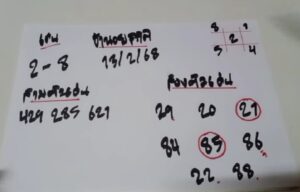 เด่น
2 - 8
13/2/68
8 1
2
5 4
สามตัวเด่น
429 285 621
สองตัวเด่น
29 20 21
84 85 86
22 88